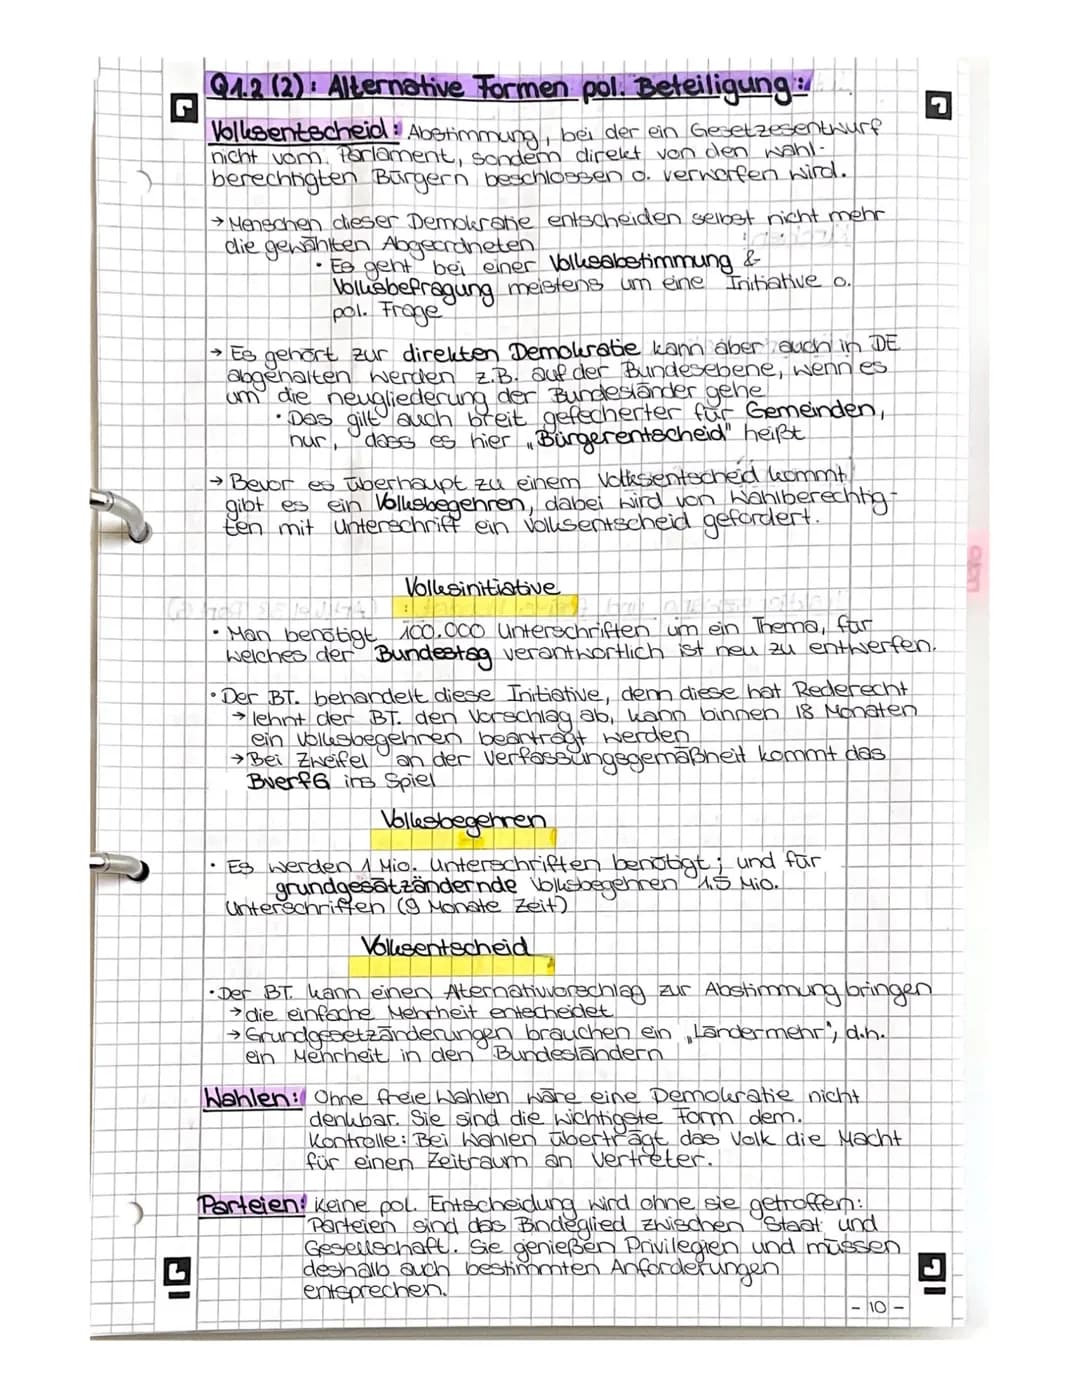 Q1.2 (2): Alternative Formen pol. Beteiligung:
Volksentscheid: Abstimmung, bei der ein Gesetzesentwurf
nicht vom Parlament, sondern direkt von den wahl-
berechtigten Bürgern beschlossen o. verworfen wird.
→ Menschen dieser Demokratie entscheiden selbst nicht mehr
die gewählten Abgeordneten
• Es geht bei einer Volksabstimmung &
Volksbefragung meistens um eine Initiative o.
pol. Frage
→ Es gehört zur direkten Demokratie kann aber auch in DE
abgehalten werden z.B. auf der Bundesebene, wenn es
um die neugliederung der Bundesländer gehe
• Das gilt auch breit gefecherter für Gemeinden,
nur, dass es hier „Bürgerentscheid" heißt
→ Bevor es überhaupt zu einem Volksentscheid kommt,
gibt es ein Volksbegehren, dabei wird von Wahlberechtig-
ten mit unterschrift ein Volksentscheid gefordert.
Volksinitiative
• Man benötigt 100.000 Unterschriften um ein Thema, für
welches der Bundestag verantwortlich ist neu zu entwerfen.
• Der BT. behandelt diese Initiative, denn diese hat Rederecht
→ lehnt der BT. den Vorschlag ab, kann binnen 18 Monaten
ein Volksbegehren beantragt werden
→ Bei Zweifel an der Verfassungsgemäßheit kommt das
BverfG ins Spiel
Volksbegehren
• Es werden 1 Mio. Unterschriften benötigt; und für
grundgesätzändernde Volksbegehren 1,5 Mio.
Unterschriften (9 Monate Zeit)
Volksentscheid
• Der BT. kann einen Aternativvorschlag zur Abstimmung bringen
→ die einfache Mehrheit entscheidet
→ Grundgesetzänderungen brauchen ein „Ländermehr", d.h.
ein Mehrheit in den Bundesländern
Wahlen: Ohne freie Wahlen wäre eine Demokratie nicht
denkbar. Sie sind die wichtigste Form dem.
Kontrolle: Bei Wahlen überträgt das Volk die Macht
für einen Zeitraum an Vertreter.
Parteien: Keine pol. Entscheidung wird ohne sie getroffen:
Parteien sind das Bindeglied zwischen Staat und
Gesellschaft. Sie genießen Privilegien und müssen
deshalb auch bestimmten Anforderungen
entsprechen.
- 10 -